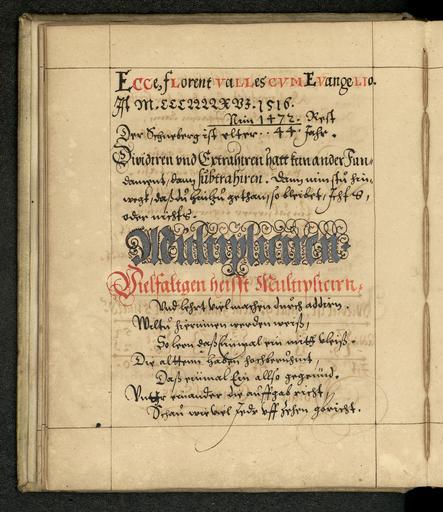 ECCe, fLorent VaLLes CVM EVangeLIo.
Ist M.CCCLLLLLXVI. 1516.
Nim 1472. Rest
Der Schneberg ist elter .. 44. Jahr.
Dividiren vnd Extrahiren hatt kein ander Fun-
dament, dann subtrahiren. Dann nimstu hin-
wegk, daß du hinzu gethan, so bleibet,
oder nichts.
Multiplicirn.
Vielfaltigen heisst Multiplicirn,
Vnd lehrt viel machen durch addirn.
Wiltu hierinnen werden weiß,
So lern daß Einmal ein mitt vleiß.
Die altten haben hochberuhmt,
Daß einmal Ein allso gegründ.
Vnter einander die auffgab richt,
Schau wie viel Jede vff Zehen gericht.